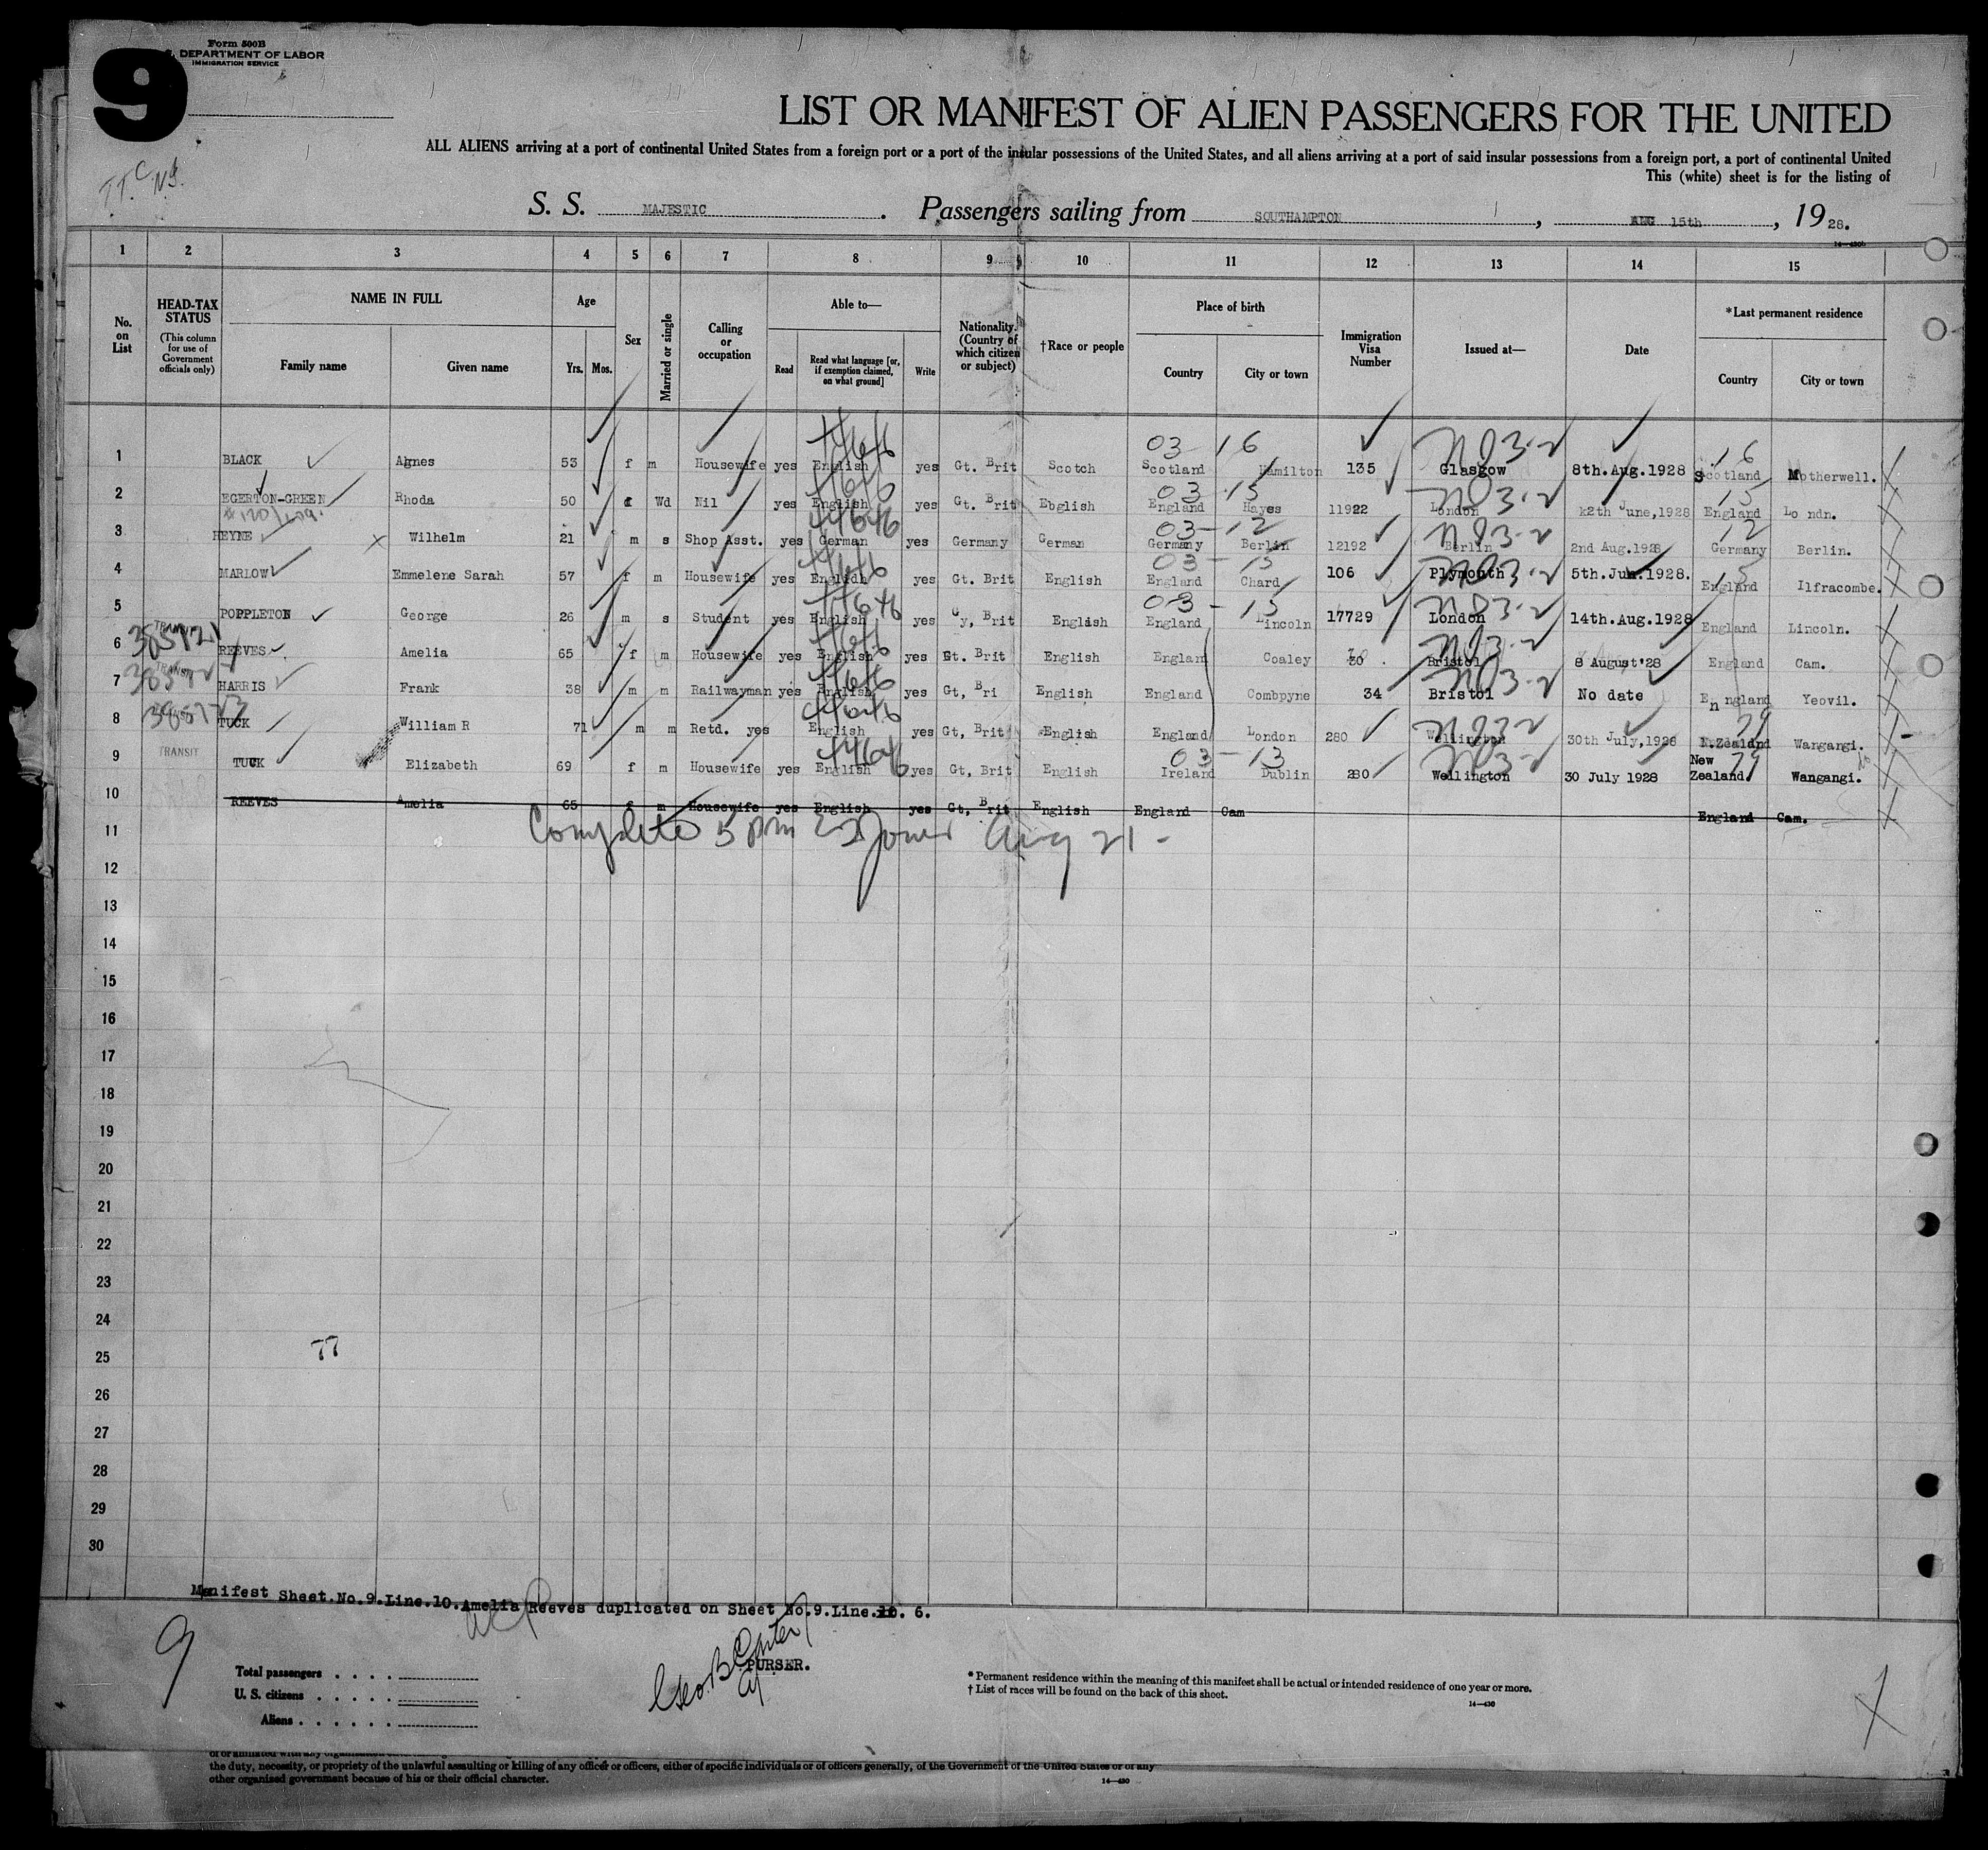 9
Form 500B
DEPARTMENT OF LABOR
IMMIGRATION SERVICE
LIST OR MANIFEST OF ALIEN PASSENGERS FOR THE UNITED
ALL ALIENS arriving at a port of continental United States from a foreign port or a port of the insular possessions of the United States, and all aliens arriving at a port of said insular possessions from a foreign port, a port of continental United
This (white) sheet is for the listing of
S. S. MAJESTIC. Passengers sailing from SOUTHAMPTON, AUG 15th, 1928.
14—430b
1 2 3 4 5 6 7 8 9 10 11 12 13 14 15
No. on List
HEAD-TAX STATUS
(This column for use of Government officials only)
NAME IN FULL
Family name Given name
Age
Yrs. Mos.
Sex
Married or single
Calling or occupation
Able to—
Read Read what language [or, if exemption claimed, on what ground] Write
Nationality. (Country of which citizen or subject)
†Race or people
Place of birth
Country City or town
Immigration Visa Number
Issued at—
Date
*Last permanent residence
Country City or town
03 - 16 16
1 BLACK Agnes 53 f m Housewife yes English yes Gt. Brit Scotch Scotland Hamilton 135 Glasgow 8th.Aug.1928 Scotland Motherwell.
03 - 15 15
2 EGERTON-GREEN Rhoda 50 f Wd Nil yes English yes Gt. Brit Ebglish England Hayes 11922 London 12th June,1928 England Lo ndn.
03 - 12 12
3 HEYNE Wilhelm 21 m s Shop Asst. yes German yes Germany German Germany Berlin 12192 Berlin 2nd Aug.1928 Germany Berlin.
03 - 15
4 MARLOW Emmelene Sarah 57 f m Housewife yes English yes Gt. Brit English England Chard 106 Plymouth 5th.Jun.1928. England Ilfracombe.
03 - 15
5 POPPLETON George 26 m s Student yes English yes Gy, Brit English England Lincoln 17729 London 14th.Aug.1928 England Lincoln.
TRANSIT
6 REEVES Amelia 65 f m Housewife yes English yes Gt. Brit English Englan Coaley 30 Bristol 8 August'28 England Cam.
TRANSIT
7 HARRIS Frank 38 m m Railwayman yes English yes Gt, Bri English England Combpyne 34 Bristol No date En ngland Yeovil.
8 TUCK William R 71 m m Retd. yes English yes Gt, Brit English England London 280 Wellington 30th July,1928 N.Zealand Wangangi.
03 - 13
9 TRANSIT TUCK Elizabeth 69 f m Housewife yes English yes Gt, Brit English Ireland Dublin 280 Wellington 30 July 1928 New Zealand Wangangi.
10 REEVES Amelia 65 f m Housewife yes English yes Gt, Brit English England Cam England Cam.
Complete 5 pm Aug 21 -
11
12
13
14
15
16
17
18
19
20
21
22
23
24
77
25
26
27
28
29
30
Manifest Sheet.No.9.Line.10.Amelia Reeves duplicated on Sheet No.9.Line.10. 6.
9
PURSER.
Total passengers
U. S. citizens
Aliens
* Permanent residence within the meaning of this manifest shall be actual or intended residence of one year or more.
† List of races will be found on the back of this sheet.
14—430
the duty, necessity, or propriety of the unlawful assaulting or killing of any officer or officers, either of specific individuals or of officers generally, of the Government of the United States or of any
other organized government because of his or their official character.
14—430